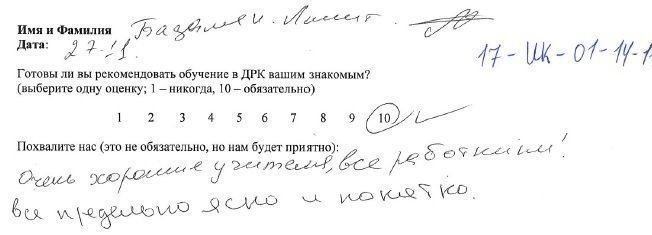 Имя и Фамилия
Дата: 27.11
17-ИК-01-14-1
Готовы ли вы рекомендовать обучение в ДРК вашим знакомым?
(выберите одну оценку; 1 – никогда, 10 – обязательно)
1 2 3 4 5 6 7 8 9 10
Похвалите нас (это не обязательно, но нам будет приятно):
Очень хорошие учителя, все работники!
все предельно ясно и понятно.